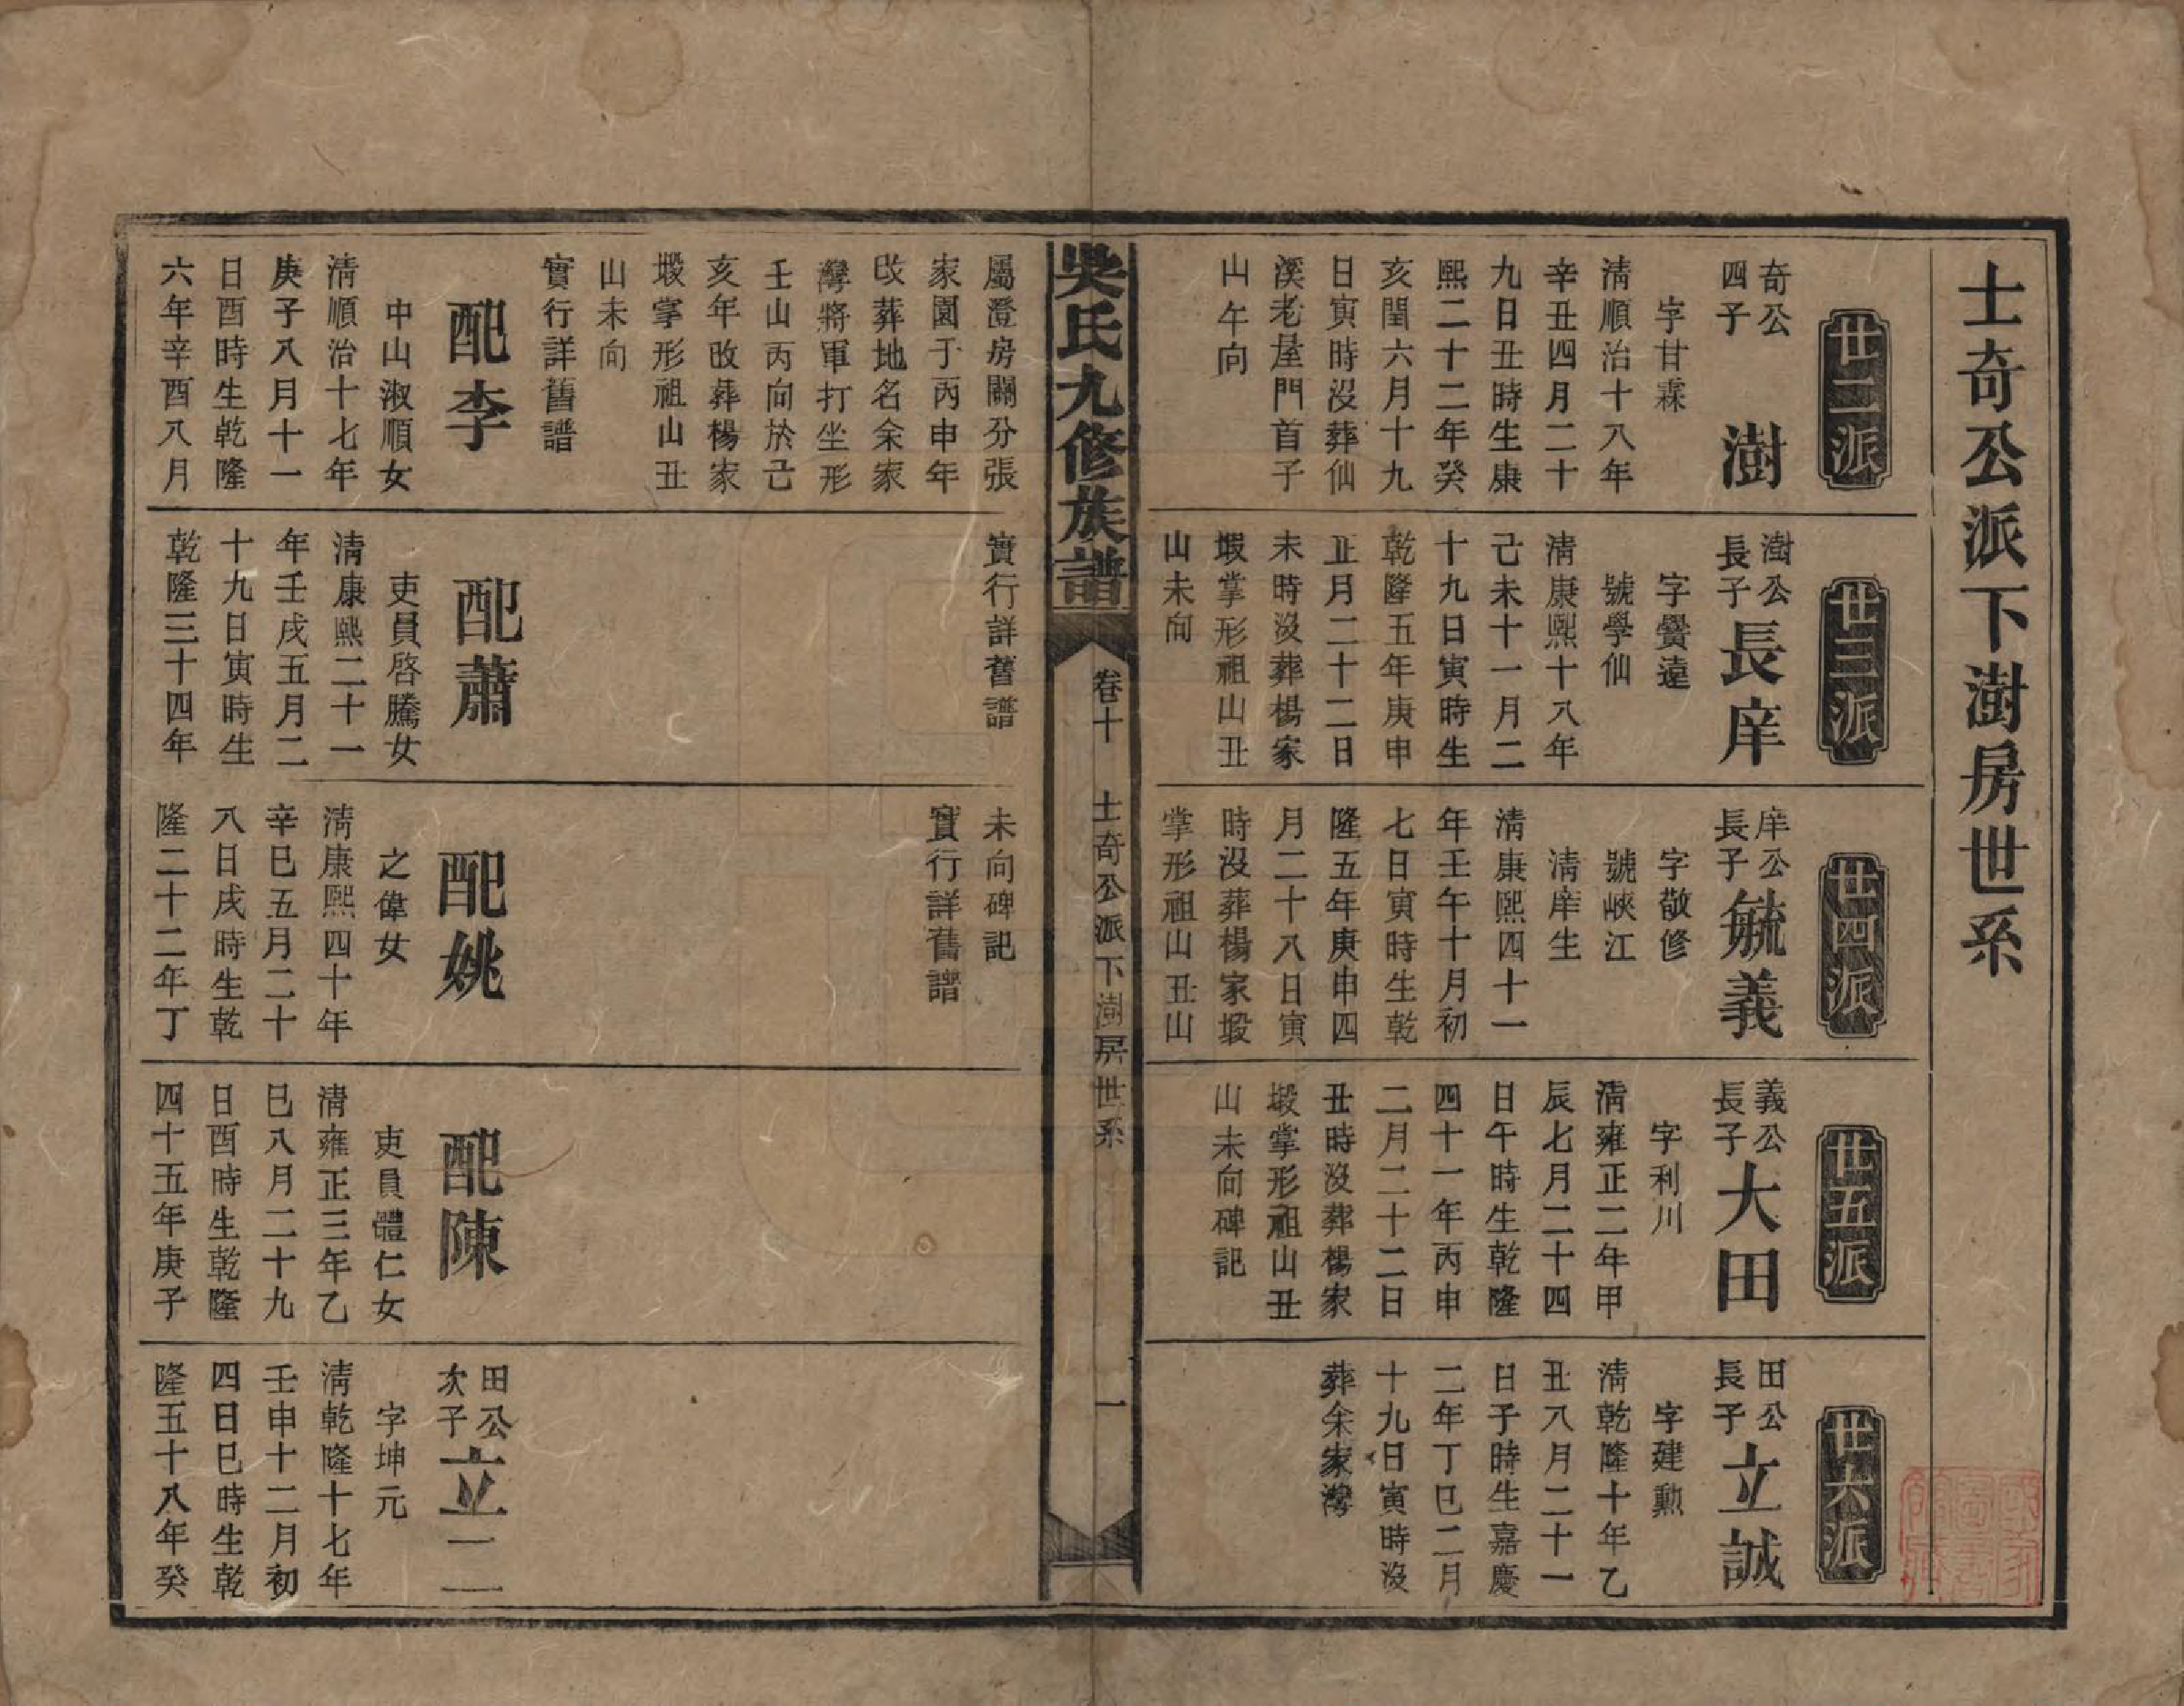 士奇公派下澍房世系
廿二派
奇公
四子
澍
字甘霖
清順治十八年
辛丑四月二十
九日丑時生康
熙二十二年癸
亥閏六月十九
日寅時沒葬仙
溪老屋門首子
山午向
廿三派
澍公
長子
長庠
字黌遠
號學仙
清康熙十八年
己未十一月二
十九日寅時生
乾隆五年庚申
正月二十二日
未時沒葬楊家
塅掌形祖山丑
山未向
廿四派
庠公
長子
毓義
字敬修
號峽江
清庠生
清康熙四十一
年壬午十月初
七日寅時生乾
隆五年庚申四
月二十八日寅
時沒葬楊家塅
掌形祖山丑山
廿五派
義公
長子
大田
字利川
清雍正二年甲
辰七月二十四
日午時生乾隆
四十一年丙申
二月二十二日
丑時沒葬楊家
塅掌形祖山丑
山未向碑記
廿六派
田公
長子
立誠
字建勳
清乾隆十年乙
丑八月二十一
日子時生嘉慶
二年丁巳二月
十九日寅時沒
葬余家灣
吳氏九修族譜
卷十
士奇公派下澍房世系
一
屬澄房關分張
家園于丙申年
改葬地名余家
灣將軍打坐形
壬山丙向於己
亥年改葬楊家
塅掌形祖山丑
山未向
實行詳舊譜
配李
中山淑順女
清順治十七年
庚子八月十一
日酉時生乾隆
六年辛酉八月
實行詳舊譜
配蕭
吏員啓騰女
清康熙二十一
年壬戌五月二
十九日寅時生
乾隆三十四年
未向碑記
實行詳舊譜
配姚
之偉女
清康熙四十年
辛巳五月二十
八日戌時生乾
隆二十二年丁
配陳
吏員體仁女
清雍正三年乙
巳八月二十九
日酉時生乾隆
四十五年庚子
田公
次子
立二
字坤元
清乾隆十七年
壬申十二月初
四日巳時生乾
隆五十八年癸